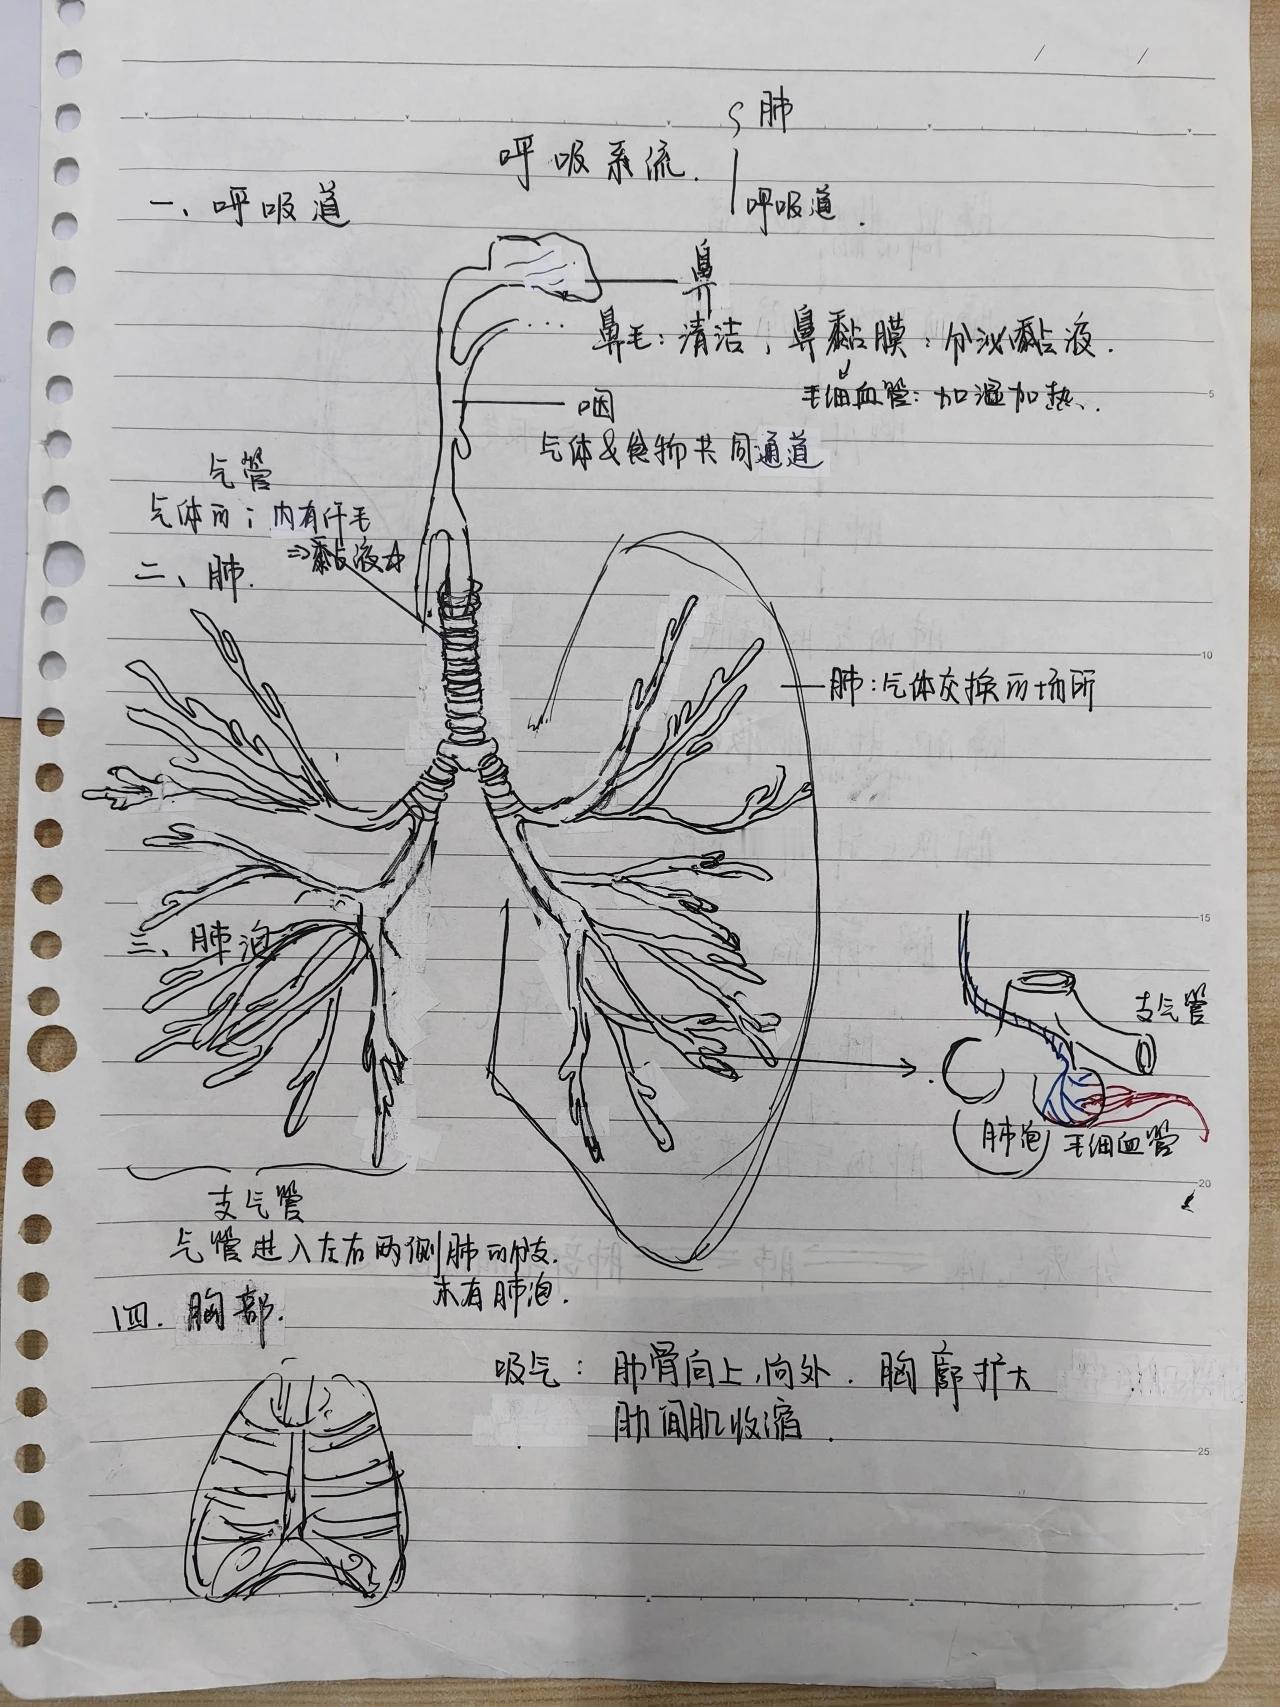 肺
呼吸系流.
呼吸道.
一、呼吸道
鼻
鼻毛：清洁，鼻黏膜：分泌黏液.
毛细血管：加湿加热.
咽
气体&食物共同通道
气管
内有纤毛
⇒黏液☆
二、肺.
肺：气体交换的场所
三、肺泡
支气管
肺泡
毛细血管
支气管
气管进入左右两侧肺的分支.
末有肺泡.
四. 胸部.
吸气：肋骨向上，向外. 胸廓扩大
肋间肌收缩.
5
10
15
20
25